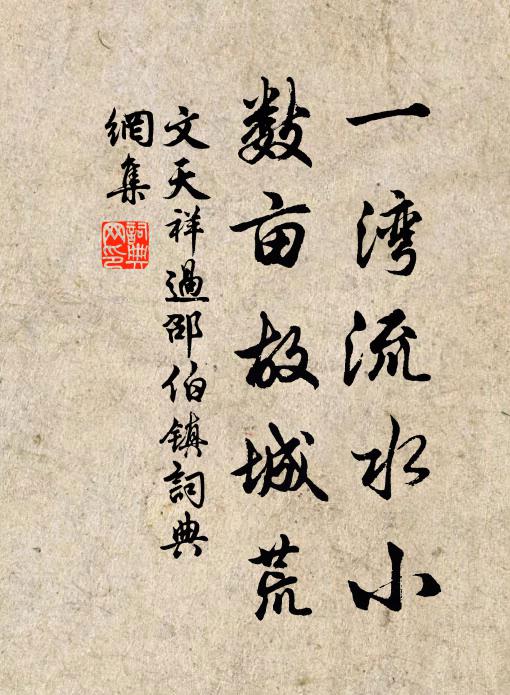 一湾流水小
数亩故城荒
文天祥過邵伯镇詞典
網集
詞典
网印